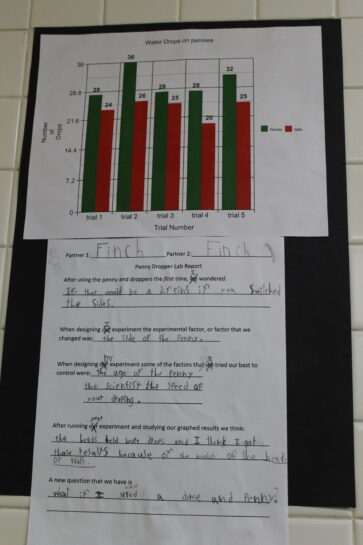 Water Drops on pennies
36
28.8
21.6
14.4
7.2
0
Number
of
Drops
28
24
36
26
28
25
28
20
32
25
heads
tails
trial 1
trial 2
trial 3
trial 4
trial 5
Trial Number
Partner 1: Finch Partner 2: Finch
Penny Dropper Lab Report
After using the penny and droppers the first time, I wondered:
If ther would be a if you switched
the sides.
When designing experiment the experimental factor, or factor that we
changed was: the side of the Penny.
When designing my experiment some of the factors that tried our best to
control were: the age of the Penny
the scientist the speed of
your dropping.
After running experiment and studying our graphed results we think:
the heads held more drops and I think I got
those results because of the mold of the heads
or tails.
A new question that we have is
what if I used a dime and Penny?